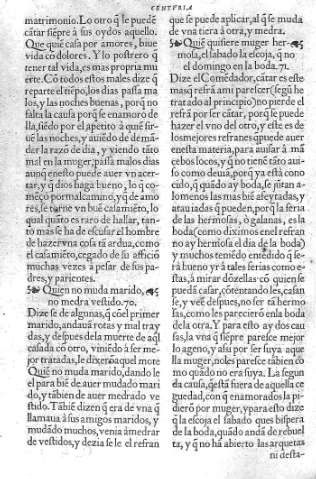 CENTVRIA
matrimonio. Lo otro q̃ le puede
cãtar siẽpre à sus oydos aquello.
Que quiẽ casa por amores, biue
vida cõ dolores. Y lo postrero q̃
tener tal vida, es mas propria mu
erte. Cõ todos estos males dize q̃
reparte el tiẽpo, los dias passa ma
los, y las noches buenas, porq̃ no
falta la causa porq̃ se enamoro de
lla, siẽdo por el apetito à quiẽ sir-
uẽ las noches, y auiẽdo de demã-
der la razõ de dia, y viendo tãto
mal en la muger, passa malos dias
aunq̃ enesto puede auer vn acer-
tar, y q̃ dios haga bueno, lo q̃ co-
mẽço por mal camino, y q̃ de amo
res, se torne vn buẽ casamiẽto, lo
qual quãto es raro de hallar, tan-
to mas se ha de escusar el hombre
de hazer vna cosa tã ardua, como
el casamiẽto, cegado de su afficiõ
muchas vezes à pesar de sus pa-
dres, y parientes.
Quien no muda marido,
no medra vestido. 70.
Dize se de algunas, q̃ cõ el primer
marido, andauã rotas y mal tray
das, y despues de la muerte de aq̃l
casada cõ otro, viniẽdo à ser me-
jor tratadas, le dixerõ aq̃l mote
Quiẽ no muda marido, dando le
el para biẽ de auer mudado mari
do, y tãbien de auer medrado ve
stido. Tãbiẽ dizen q̃ era de vna q̃
llamaua à sus amigos maridos, y
mudãdo muchos, venia à medrar
de vestidos, y dezia se le el refran
que se puede aplicar, al q̃ se muda
de vna tierra à otra, y medra.
Quiẽ quisiere muger her-
mosa, el sabado la escoja, q̃ no
el domingo en la boda. 71.
Dize el Comẽdador, cãtar es este
mas q̃ refrã à mi parescer (segũ he
tratado al principio) no pierde el
refrã por ser cãtar, porq̃ se puede
hazer el vno del otro, y este es de
los mejores refranes q̃ puede auer
en esta materia, para auisar à mã
cebos locos, y q̃ no tienẽ tãto aui-
so como deuiã, porq̃ ya està cono
cido, q̃ quãdo ay boda, se jũtan a-
lomenos las mas biẽ afeytadas, y
atauiadas q̃ pueden, porq̃ la feria
de las hermosas, ò galanas, es la
boda (como diximos en el refran
no ay hermosa el dia de la boda)
y muchos teniẽdo entẽdido q̃ se-
rà bueno yr à tales ferias como e-
stas, à mirar dõzellas cõ quien se
puedã casar, cõtentando les, casan
se, y veẽ despues, no ser tã hermo
sas, como les parecierõ en la boda
de la otra. Y para esto ay dos cau
sas, la vna q̃ siẽpre paresce mejor
lo ageno, y assi por ser suya aque
lla muger, no les paresce tãbien co
mo quãdo no era suya. La segun
da causa, q̃ està fuera de aquella ce
guedad, con q̃ enamorados la pi-
dierõ por muger, y para esto dize
q̃ la escoja el sabado que es vispera
de la boda, quãdo anda de rebuel
ta, y q̃ no ha abierto las arquetas
ni desta-